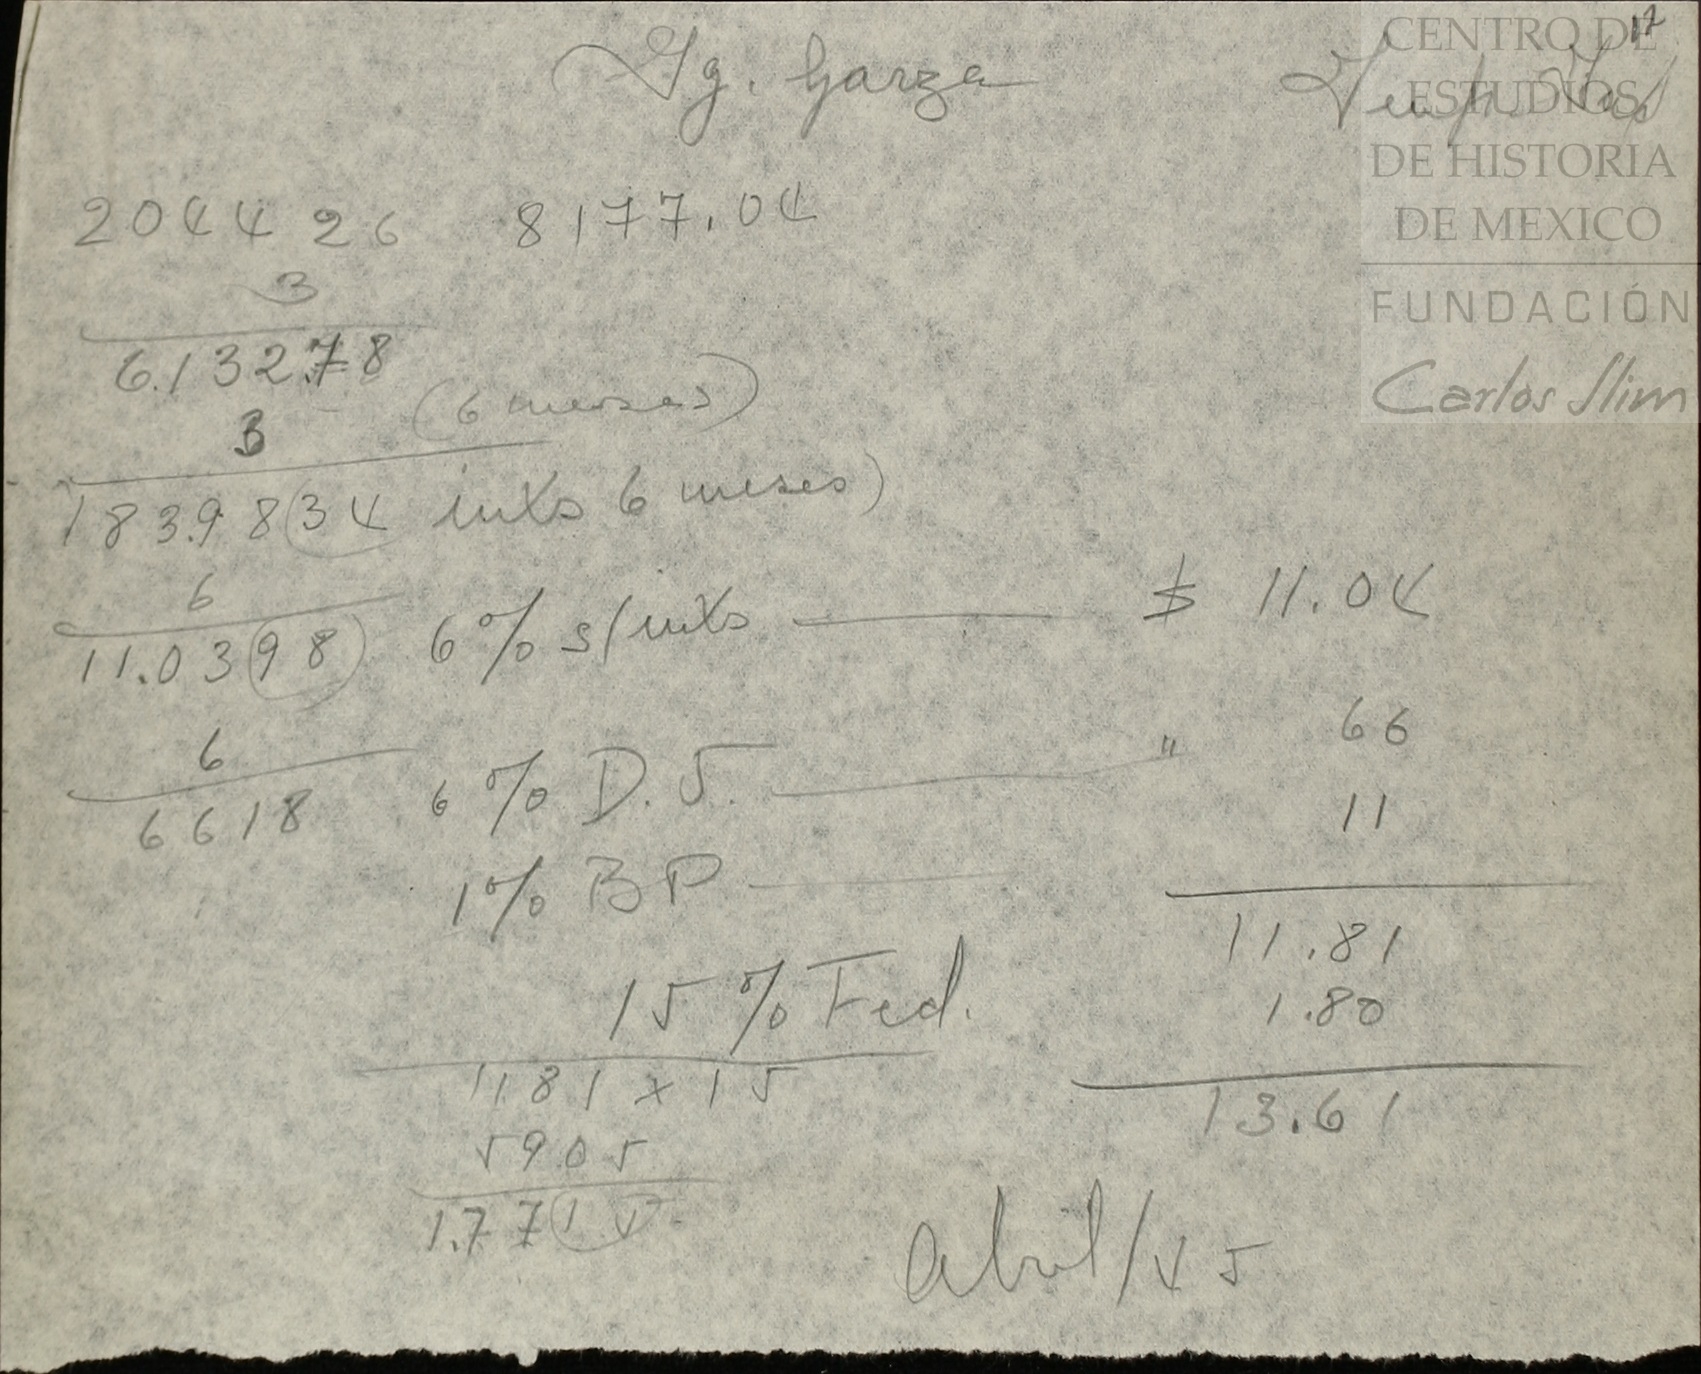 17
Ig. Garza
204426 8177.04
3
6.13278
3 (6 meses)
1839.834 intxs 6 meses)
6
11.0398 6% s/intxs $ 11.04
6
6618 6% D.S. " 66
1% BP 11
11.81
15% Fed. 1.80
1181 x 15 13.61
5905
1.7715
Abril/45
CENTRO DE
ESTUDIOS
DE HISTORIA
DE MEXICO
FUNDACIÓN
Carlos Slim